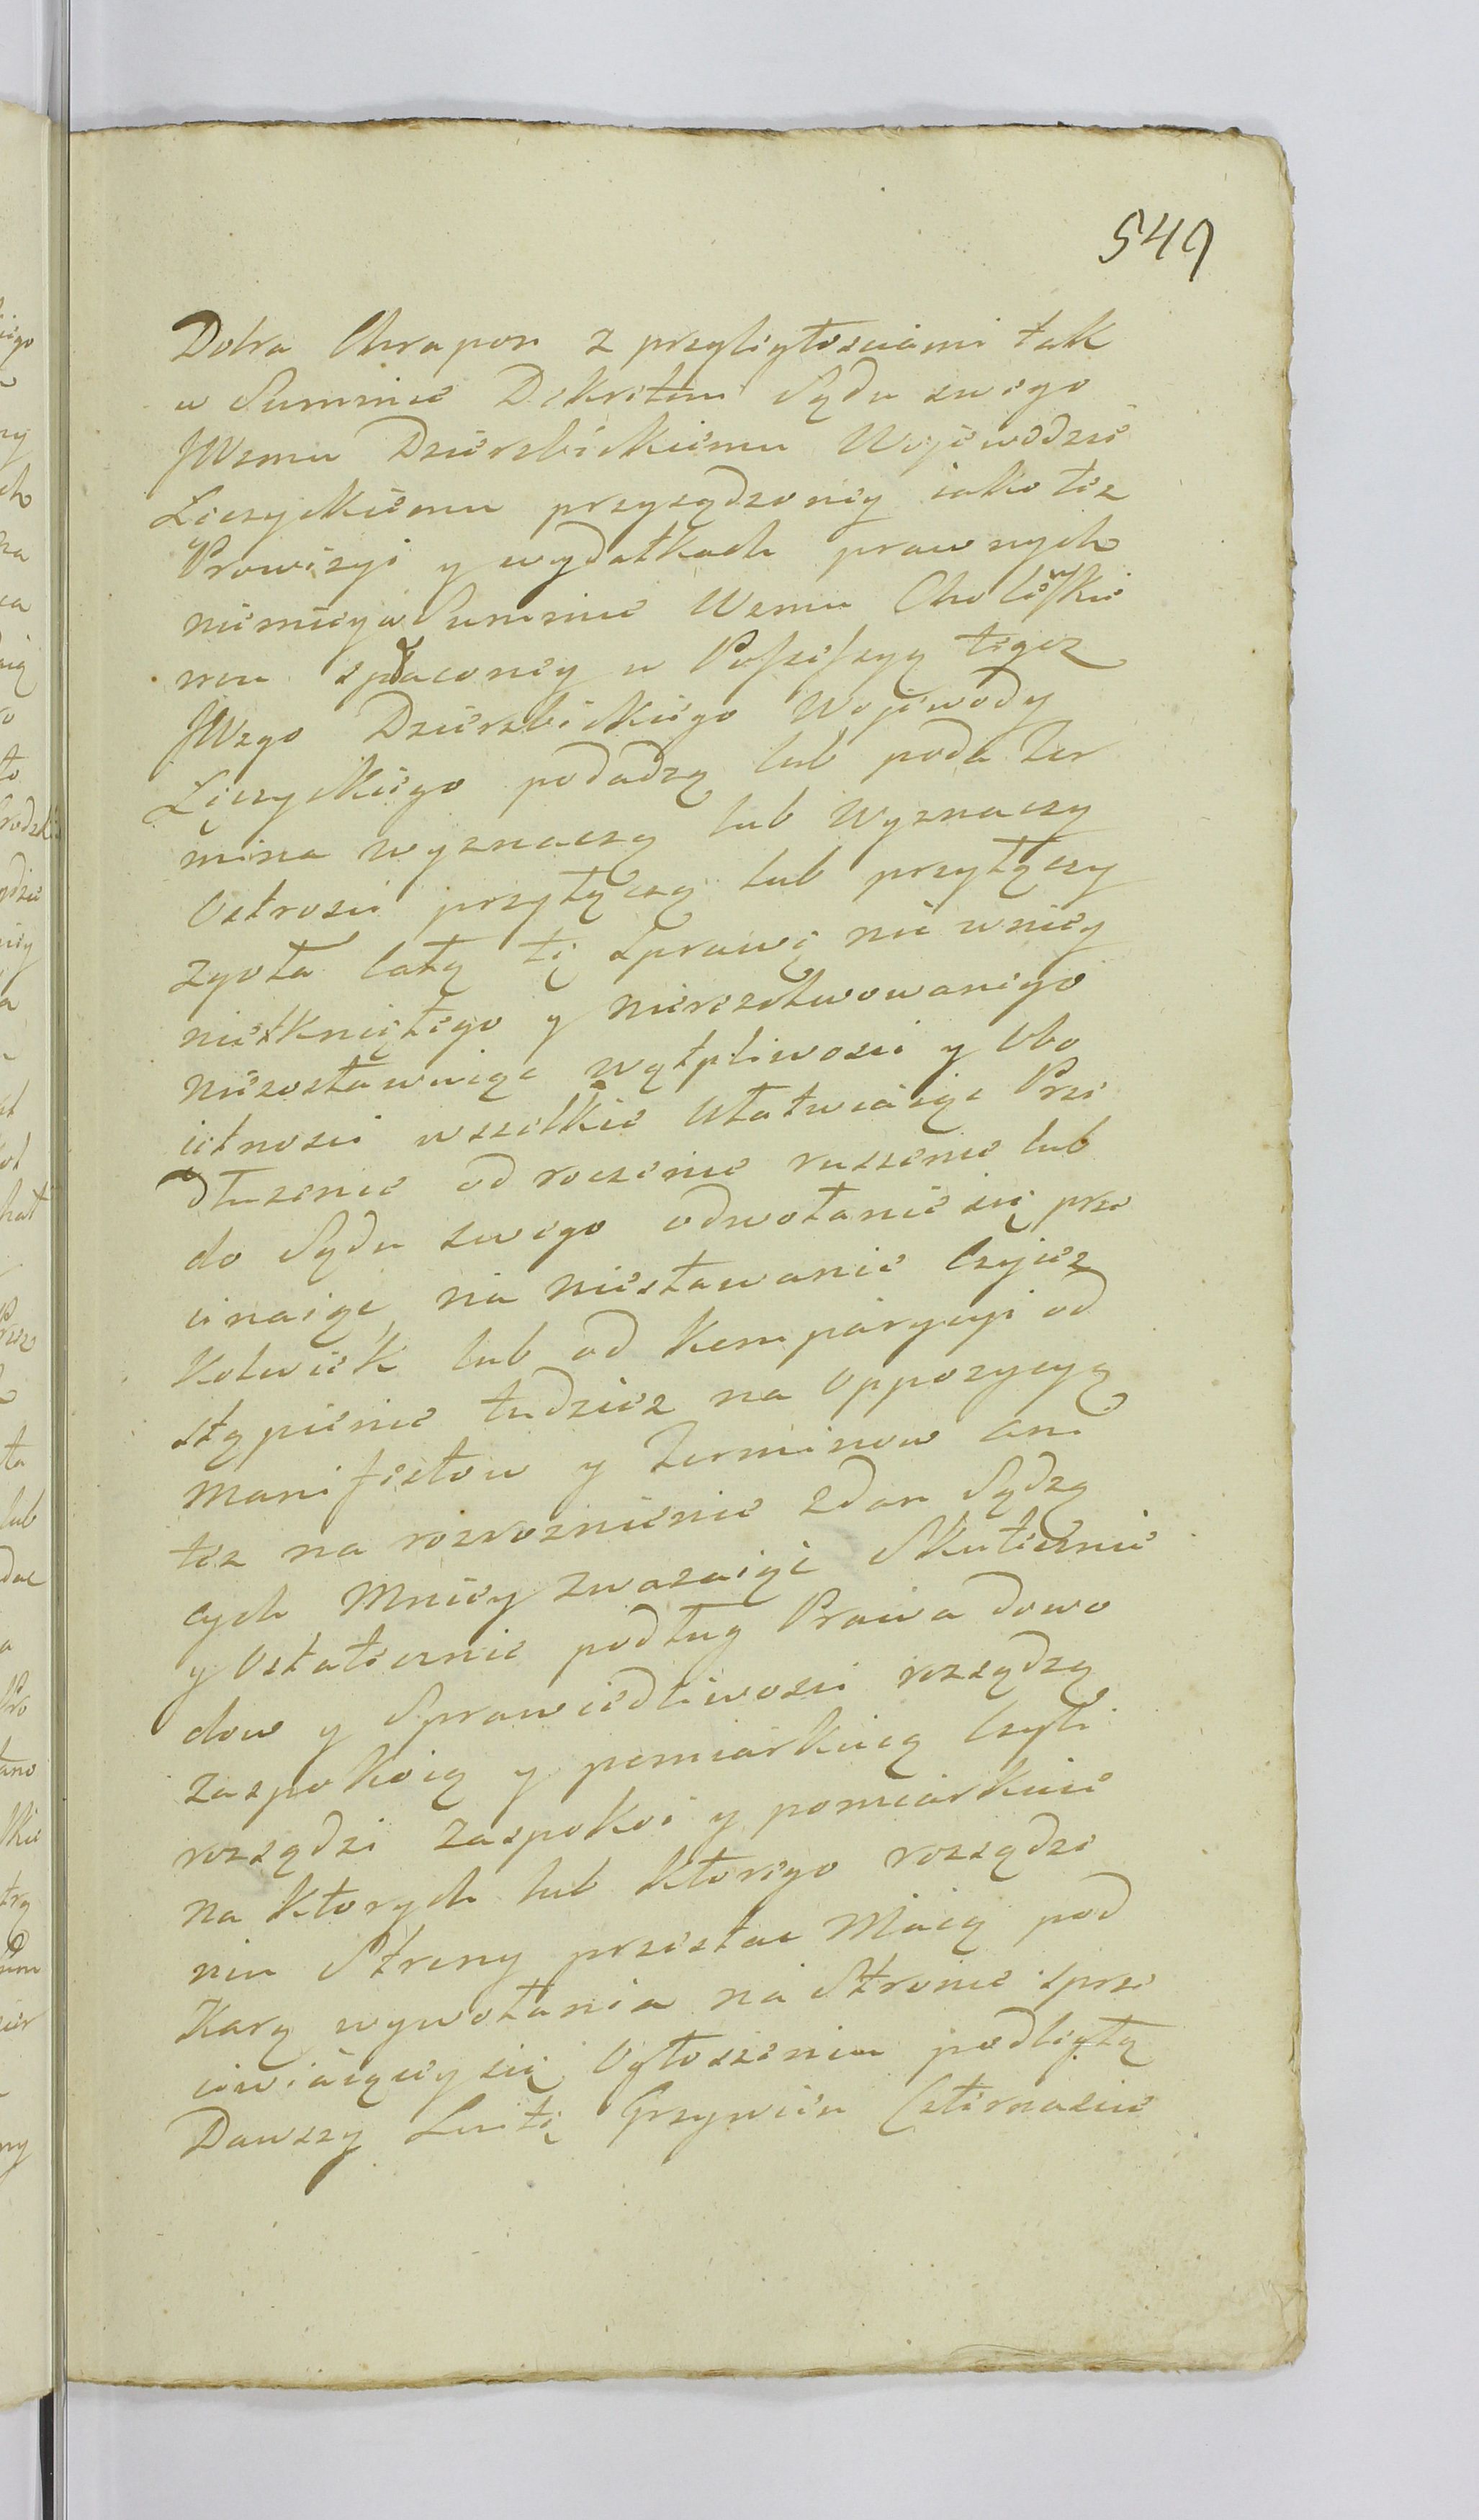 549
Dobra Chrapon z przyległosciami tak
w Summie Dekretem Sądu swego
JWzmu Dzierzbickiemu Wojewodzie
Łęczyckiemu przysądzoney iako tez
Prowizyi y wydatkach prawnych
niemniey w Summie Wzmu Cholewskie
mu spłaconey w Possessyą tegoz
JWzgo Dzierzbickiego Wojewody
Łęczyckiego podadzą lub poda Ter
mina wyznaczą lub Wyznaczy
Ostrosci przyłączą lub przyłączy
zgoła Całą tę Sprawę nic wniey
nietkniętego y nierezolwowanego
niezostawuiąc wątpliwosci y Obo
iętnosci wszelkie Ułatwiaiąc Prze
dłuzenie odroczenie ruszenie lub
do Sądu swego odwołanie się prze
cinaiąc na niestawanie Czyjez
kolwiek lub od Komparycyi od
stąpienie tudziez na Oppozycyą
Manifestow y Terminow ani
tez na rozroznienie zdan Sądzą
cych Mniey zwazaiąc Skutecznie
y Ostatecznie podług Prawa dowo
dow y Sprawiedliwosci rozsądzą
zaspokoią y pomiarkuią Czyli
rozsądzi zaspokoi y pomiarkuie
na ktorych lub ktorego rozsądze
niu Strony przestac Maią pod
Karą wywołania na Stronie sprze
ciwiaiącey się Ogłoszeniu podległą
Dawszy Luitę Grzywien Czternascie